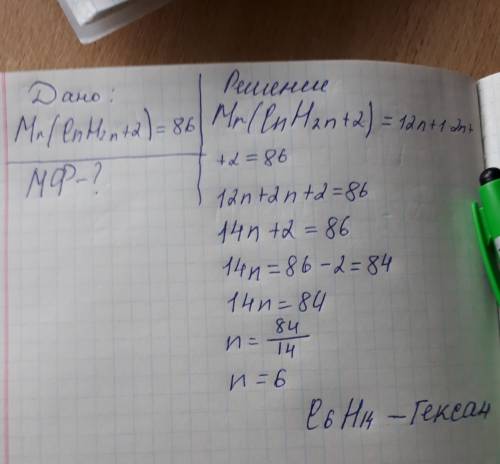 Дано:
Mr(CnH2n+2) = 86
МФ-?
Решение
Mr(CnH2n+2) = 12n+1·2n+
+2=86
12n+2n+2=86
14n+2 = 86
14n = 86-2 = 84
14n = 84
n = 84/14
n = 6
C6H14 - Гексан